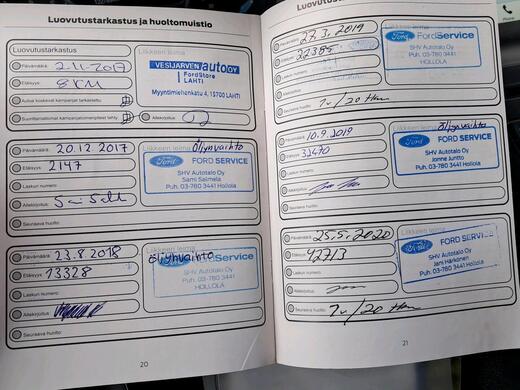 Luovutustarkastus ja huoltomuistio
Luovutustarkastus
Liikkeen leima
Päivämäärä: 2.11.2017
Etäisyys: 8 KM
VESIJÄRVEN auto OY
FordStore
LAHTI
Myyntimiehenkatu 4, 15700 LAHTI
Autoa koskevat kampanjat tarkastettu:
Allekirjoitus:
Päivämäärä: 20.12.2017
Öljynvaihto
Etäisyys: 2147
Liikkeen leima
Ford FORD SERVICE
SHV Autotalo Oy
Sami Saimela
Puh. 03-780 3441 Hollola
Laskun numero:
Allekirjoitus:
Seuraava huolto:
Päivämäärä: 23.8.2018
Liikkeen leima
öljynvaihto
Etäisyys: 13328
Ford FordService
SHV Autotalo Oy
Puh. 03-780 3441
HOLLOLA
Laskun numero:
Allekirjoitus:
Seuraava huolto:
20
Luovutustarkastus
Päivämäärä: 27.3.2019
Etäisyys: 22385
Ford FordService
SHV Autotalo Oy
Puh. 03-780 3441
HOLLOLA
Laskun numero:
Allekirjoitus:
Seuraava huolto: 1v/20
Päivämäärä: 10.9.2019
Liikkeen leima
öljynvaihto
Etäisyys: 32470
Ford FORD SERVICE
SHV Autotalo Oy
Jonne Juntto
Puh. 03-780 3441 Hollola
Laskun numero:
Allekirjoitus:
Seuraava huolto:
Päivämäärä: 25.5.2020
Liikkeen leima
Etäisyys: 42713
Ford FORD SERVICE
SHV Autotalo Oy
Jani Härkönen
Puh. 03-780 3441 Hollola
Laskun numero:
Allekirjoitus:
Seuraava huolto: 1v/20
21